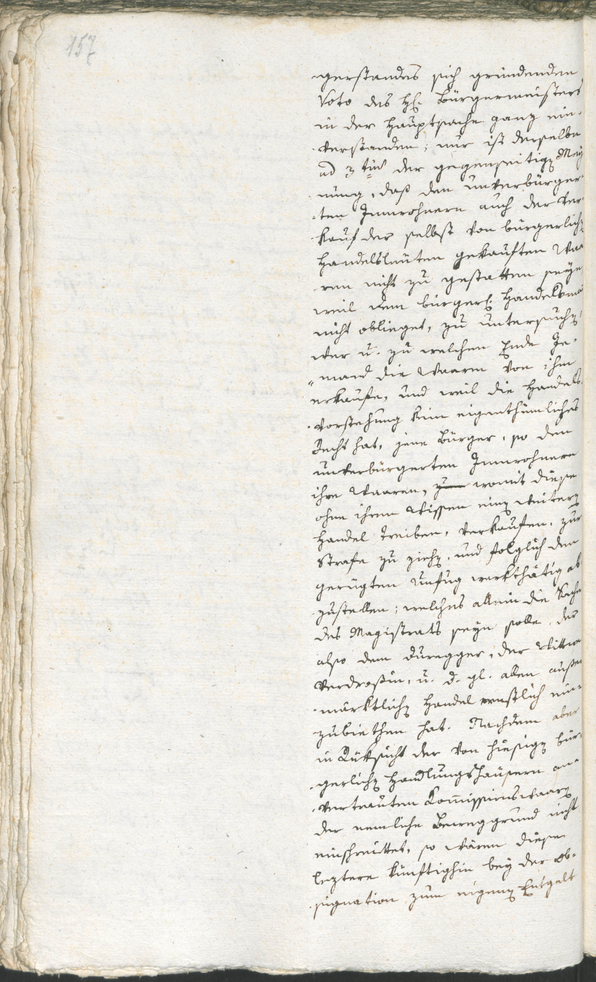 157
gerstandes sich gründenden
Voto des H. Bürgermeisters
in der Hauptsache ganz ein-
verstanden; nur ist derselbe
ad 3tium der gegenseitigen Mey-
nung, daß den unverbürger-
ten Innwohnern auch der Ver-
kauf der selbst von bürgerlichen
Handelsleuten gekauften Waa-
ren nicht zu gestatten seye,
weil dem bürgerl. Handelsman
nicht oblieget, zu untersuchen,
wer u. zu welchem Ende Je-
mand die Waaren von ihm
erkaufe, und weil die Handels-
vorstehung kein eigenthümliches
Recht hat, jene Bürger, so den
unverbürgerten Innwohnern
ihre Waaren, womit diese
ohne ihrem Wissen einen weitern
Handel treiben, verkaufen, zur
Strafe zu ziehen, und folglich den
gerügten Unfug werkthätig ab-
zustellen; welches allein die Sache
des Magistrats seyn solle, der
also dem Duregger, der Wittwe
Verdroßin, u. d. gl. allen außer-
märktlichen Handel ernstlich ein-
zubiethen hat. Nachdem aber
in Rüksicht der von hiesigen bür-
gerlichen Handlungshäusern an-
vertrauten Kommissionswaaren
der nemliche Beweggrund nicht
einschreittet, so wären diese
leztere künftighin bey der Ob-
signation zum eigenen Entgelt